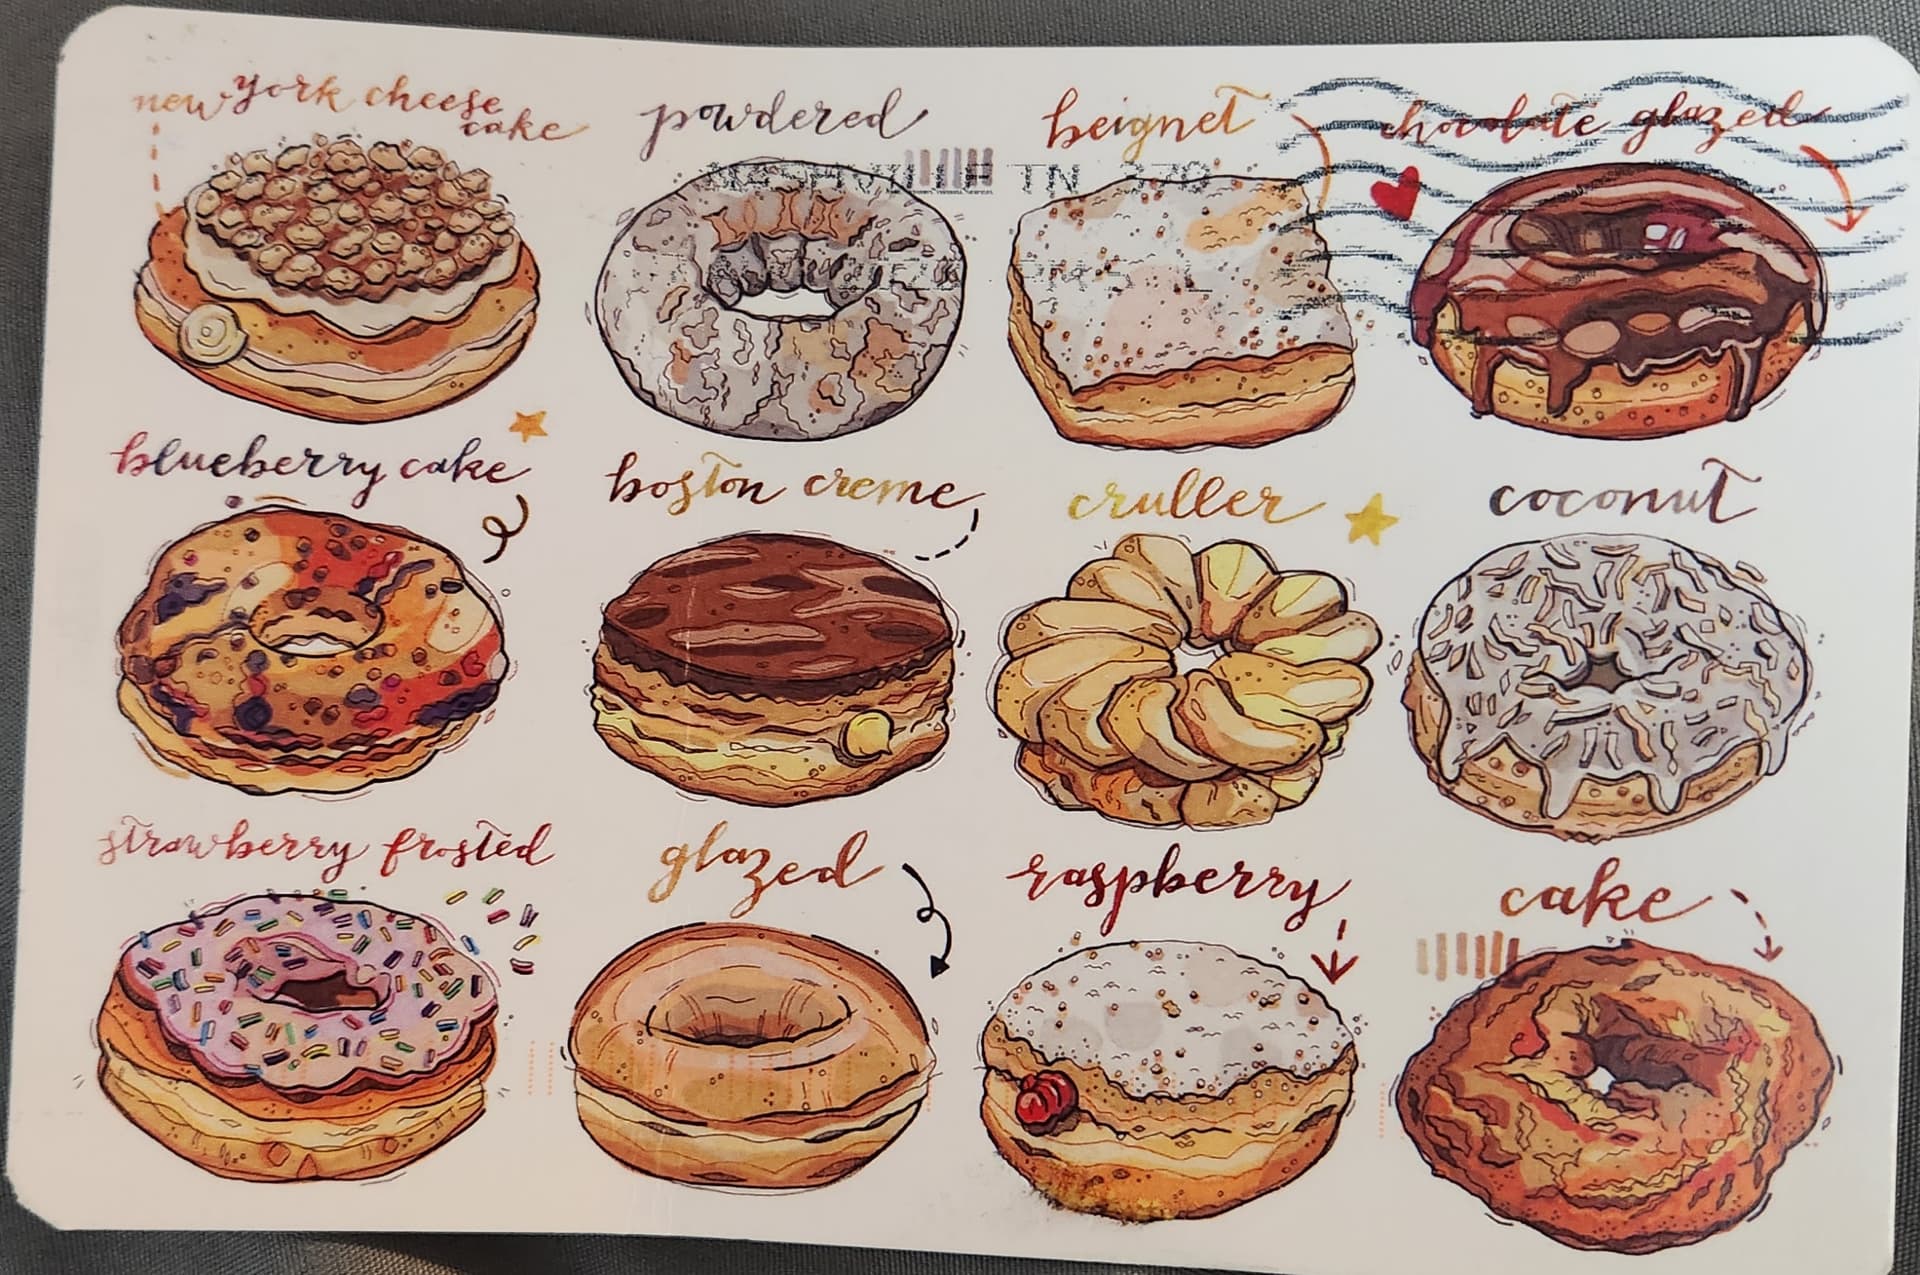 new york cheese
cake
powdered
beignet
chocolate glazed
NASHVILLE TN 370
blueberry cake
boston creme
cruller
coconut
strawberry frosted
glazed
raspberry
cake